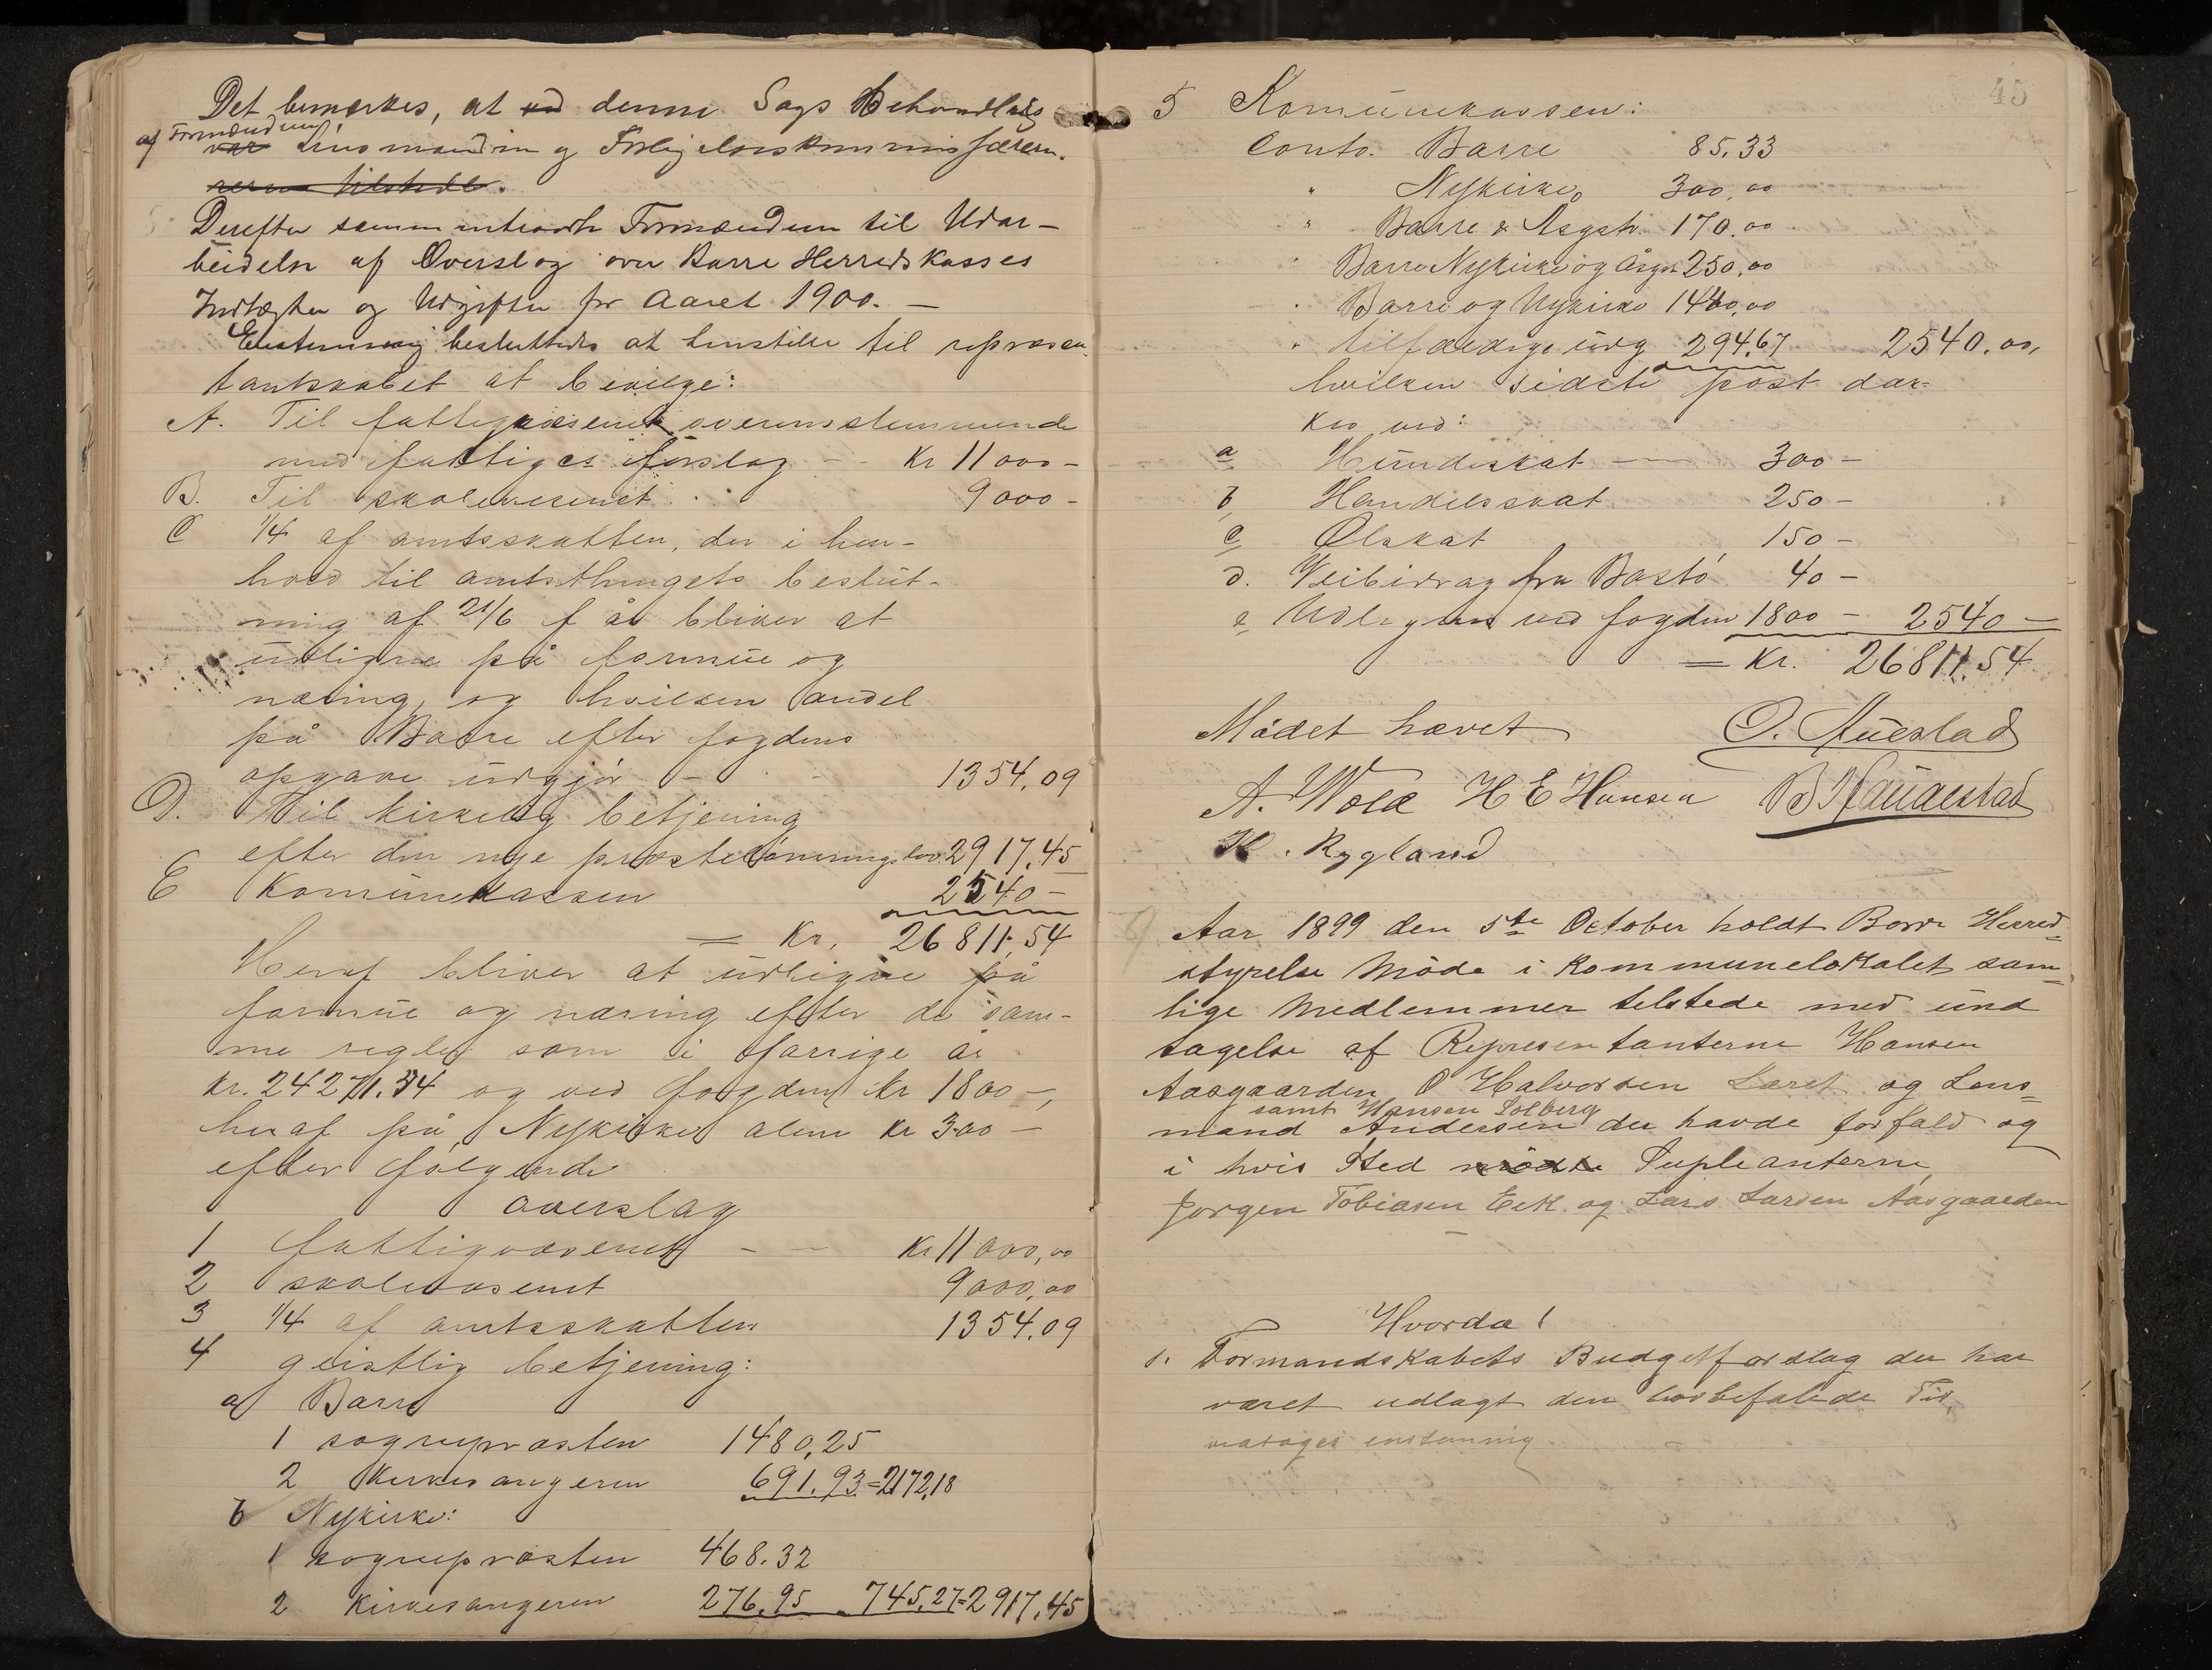 Det bemærkes, at ved denne Sags Behandling
af Formændene
var Lensmanden og Forligelseskommissærer-
rerne tilstede.
Derefter sammentraadte Formændene til Udar-
beidelse af Overslag over Borre Herredskasses
Indtægter og Udgifter for Aaret 1900. —
Enstemmig besluttedes at henstille til repræsen-
tantskabet at bevilge:
A. Til fattigvæsenet overensstemmende
med fattigcs forslag - - Kr 11000 -
B. Til skolevæsenet . . 9000 -
C 1/4 af amtsskatten, der i hen-
hold til amtsthingets beslut-
ning af 21/6 f år bliver at
udligne på formue og
næring, og hvilken andel
på Borre efter fogdens
opgave udgjør - - - 1354.09
D. Til kirkelig betjening
efter den nye præstelønningslov 2917.45
E Komunekassen 2540 -
= Kr. 26811,54
Heraf bliver at udligne på
formue og næring efter de sam-
me regler som i forrige år
kr. 24271.54 og ved fogden kr 1800 -,
heraf på Nykirke alene kr 300 -
efter følgende
overslag
1 fattigvæsenet - - Kr 11000,00
2 skolevæsenet 9000,00
3 1/4 af amtsskatten 1354.09
4 geistlig betjening:
a Borre
1 sognepræsten 1480,25
2 Kirkesangeren 691.93 = 2172,18
b Nykirke:
1 sognepræsten 468.32
2 Kirkesangeren 276,95 745,27 = 2917.45
45
5 Komunekassen:
Conto. Borre 85.33
" Nykirke 300,00
" Borre & Aasgstr. 170.00
" Borre Nykirke og Åsgs 250,00
" Borre og Nykirke 1440,00
" tilfældige udg 294.67 2540.00,
hvilken sidste post dæk-
kes ved:
a Hundeskat — 300 -
b, Handelsskat 250 -
c, Ølskat 150 -
d. Veibidrag fra Bastö 40 -
e Udlignes ved fogden 1800 - 2540 -
= Kr. 26811.54
Mödet hævet O. Auestad
A. Wold H E Hansen B Haugestad
H. Rygland
9 Aar 1899 den 5te October holdt Borre Herred-
styrelse Möde i Kommunelokalet sam-
lige Medlemmer telstede med und
tagelse af Representanterne Hansen
Aasgaarden O Halvorsen Laret og Lens-
samt Hansen Solberg
mand Andersen der havde forfald og
i hvis Sted mödte Supleanterne
Jorgen Tobiasen Eek og Lars Larsen Aasgaarden
Hvorda!
1. Formandskabets Budgetforslag der har
været udlagt den lovbefalede Tid,
vedtoges enstemmig